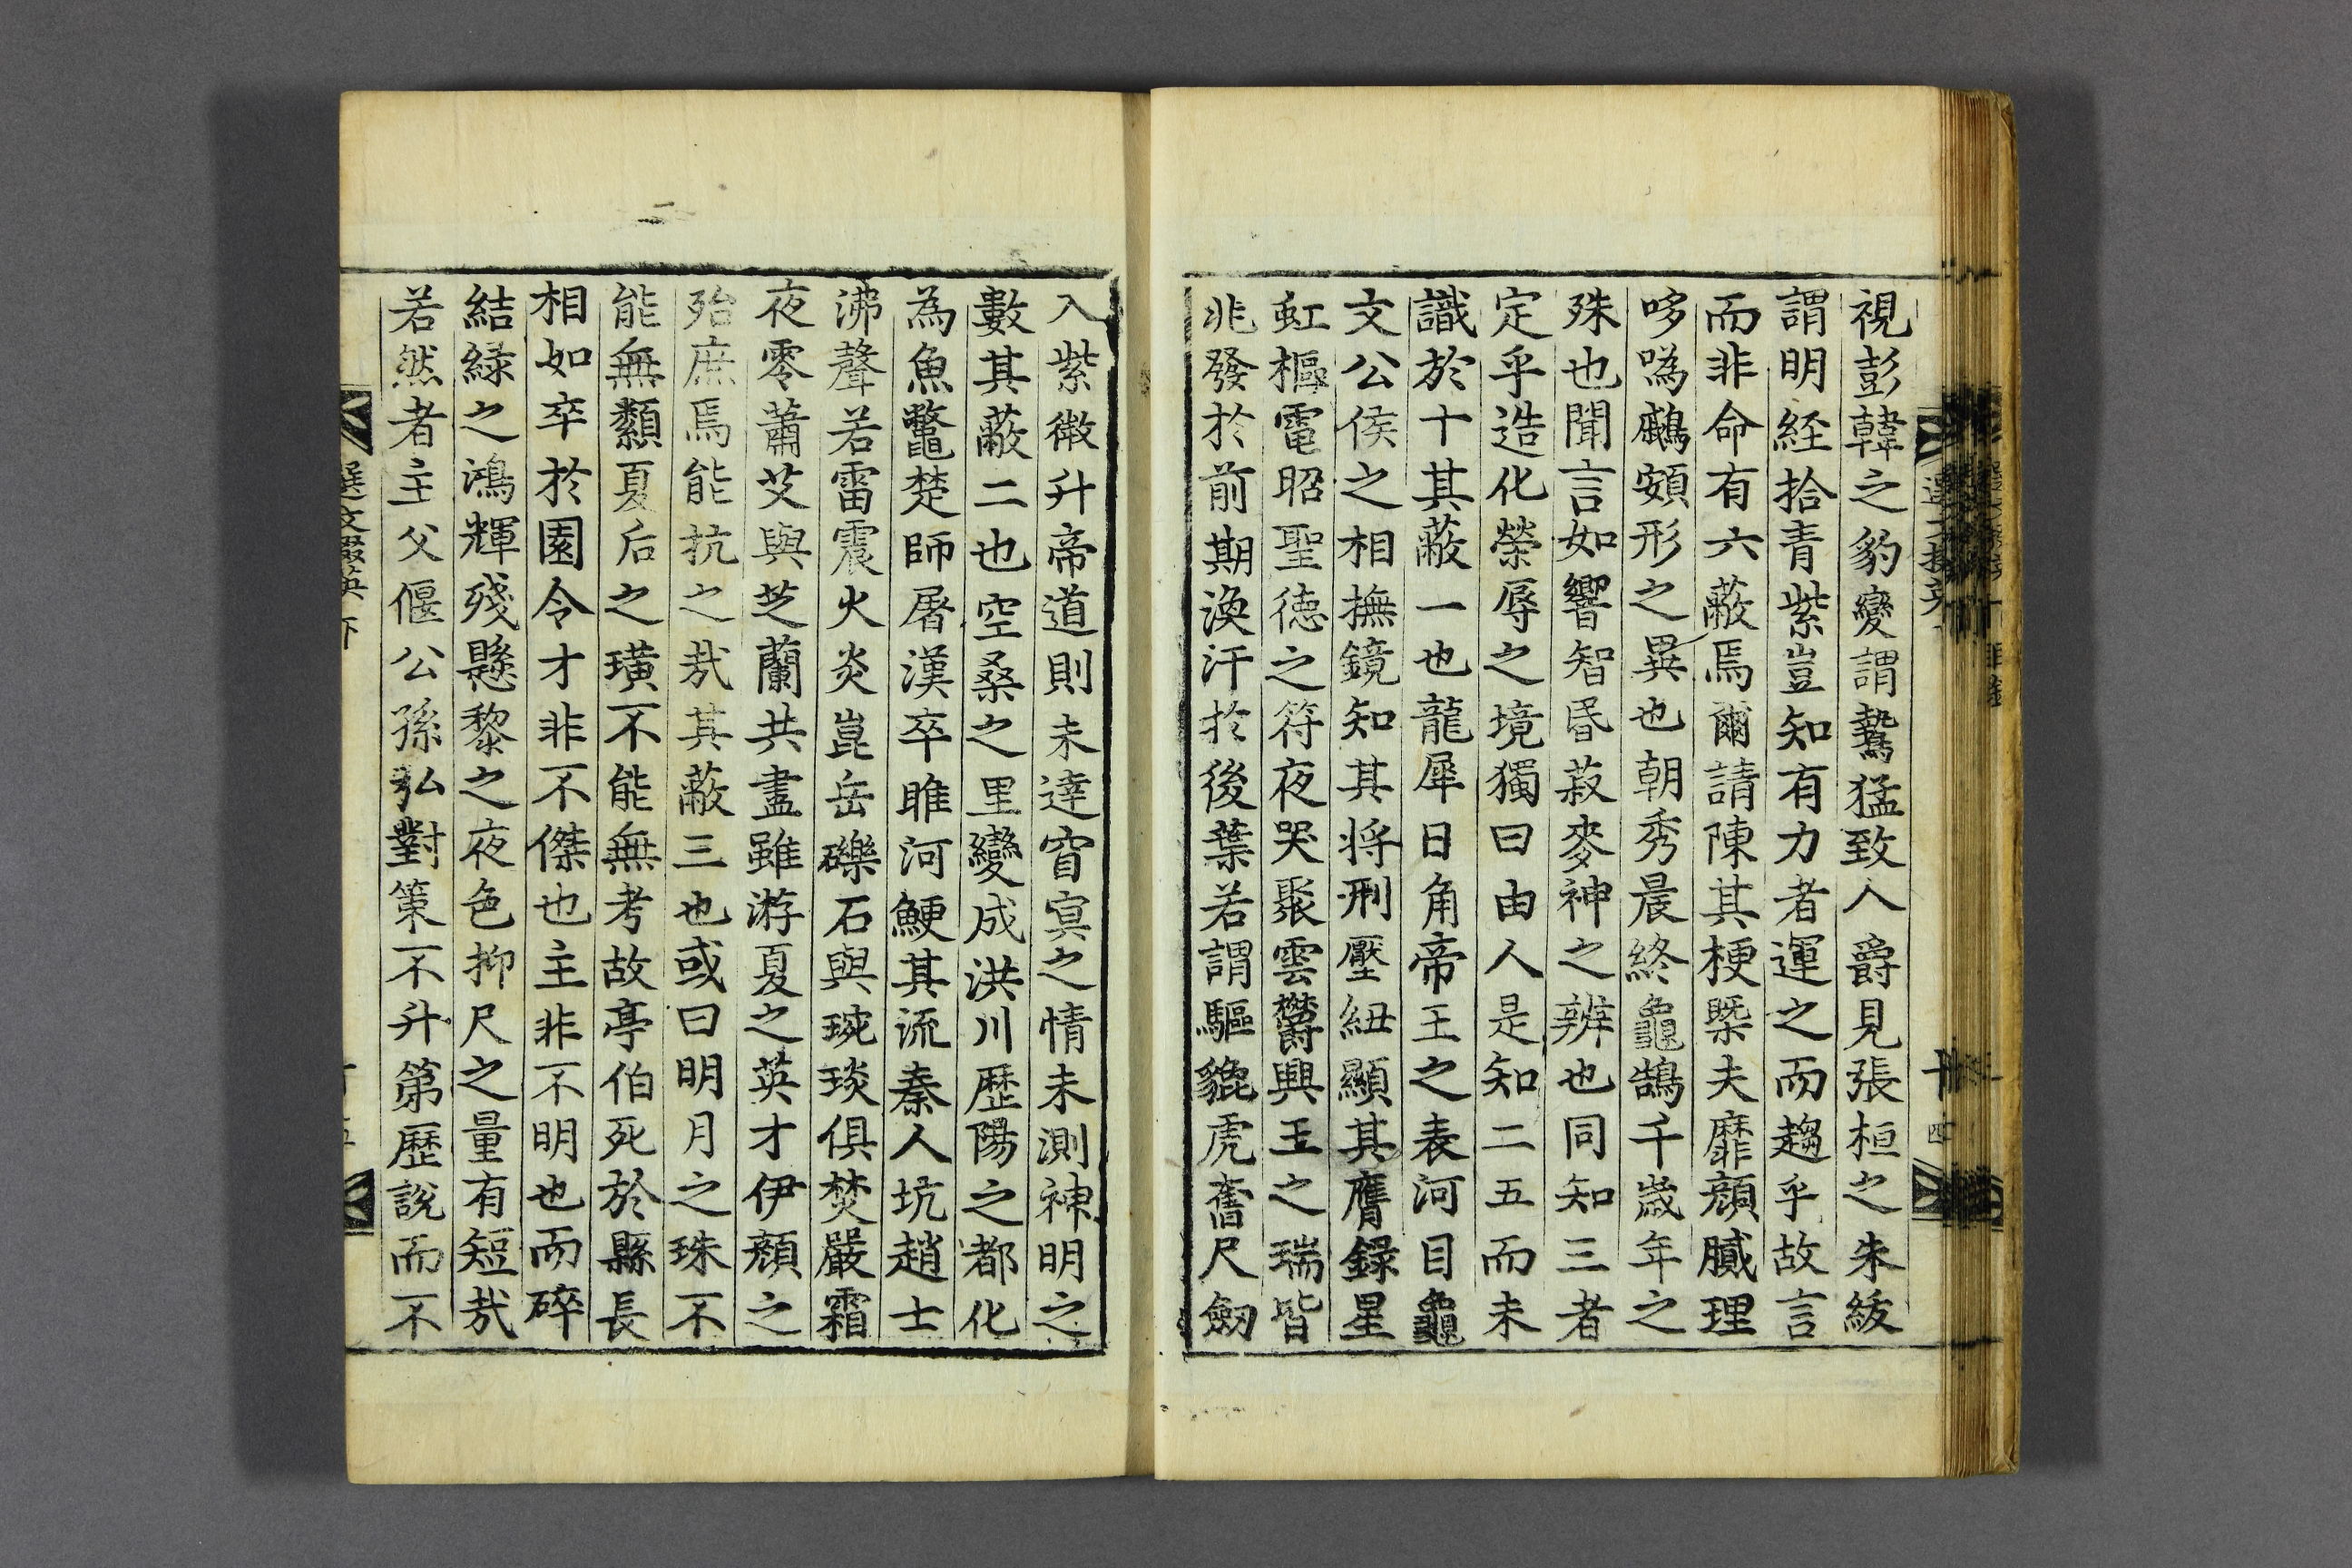 視彭韓之豹變謂鷙猛致人爵見張桓之朱紱
謂明經拾青紫豈知有力者運之而趨乎故言
而非命有六蔽焉爾請陳其梗槩夫靡顔膩理
哆噅顣頞形之異也朝秀晨終龜鵠千歲年之
殊也聞言如響智昏菽麥神之辨也同知三者
定乎造化榮辱之境獨曰由人是知二五而未
識於十其蔽一也龍犀日角帝王之表河目龜
文公侯之相撫鏡知其将刑壓紐顯其膺錄星
虹樞電昭聖德之符夜哭聚雲鬱興王之瑞皆
兆發於前期渙汗於後葉若謂驅貔虎奮尺劒
入紫微升帝道則未達窅冥之情未測神明之
數其蔽二也空桑之里變成洪川歷陽之都化
為魚鼈楚師屠漢卒睢河鯁其流秦人坑趙士
沸聲若雷震火炎崑岳礫石與琬琰俱焚嚴霜
夜零蕭艾與芝蘭共盡雖游夏之英才伊顔之
殆庶焉能抗之㢤其蔽三也或曰明月之珠不
能無纇夏后之璜不能無考故亭伯死於縣長
相如卒於園令才非不傑也主非不明也而碎
結緑之鴻輝殘懸黎之夜色抑尺之量有短㢤
若然者主父偃公孫弘對策不升第歷說而不
選文掇英 下